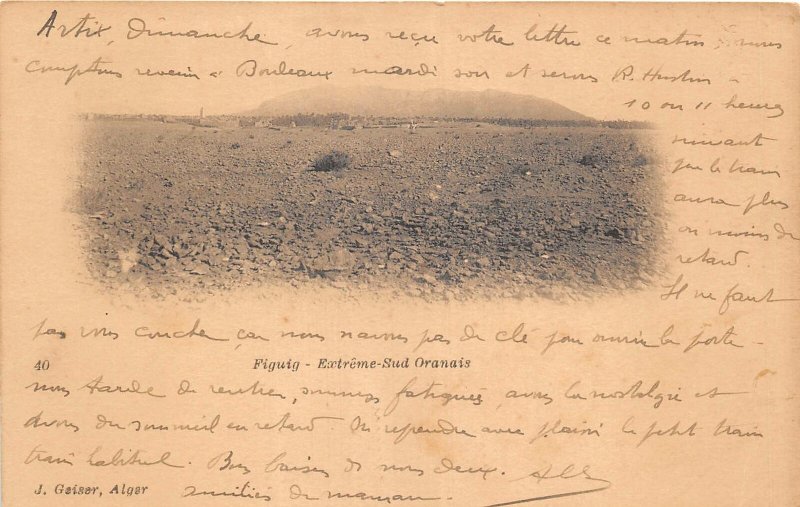 Artix, Dimanche, avons reçu votre lettre ce matin. nous
comptons revenir à Bordeaux mardi soir et serons R. Hustin à
10 ou 11 heures
suivant
que le train
aura plus
ou moins de
retard.
Il ne faut
pas vous coucher car nous n'avons pas de clé pour ouvrir la porte -
40 Figuig - Extrême-Sud Oranais
nous tarde de rentrer, sommes fatigués, avons la nostalgie et
avons du sommeil en retard. reprendre avec plaisir le petit train
train habituel. Bons baisers de nous deux.
J. Geiser, Alger
amitiés de maman.